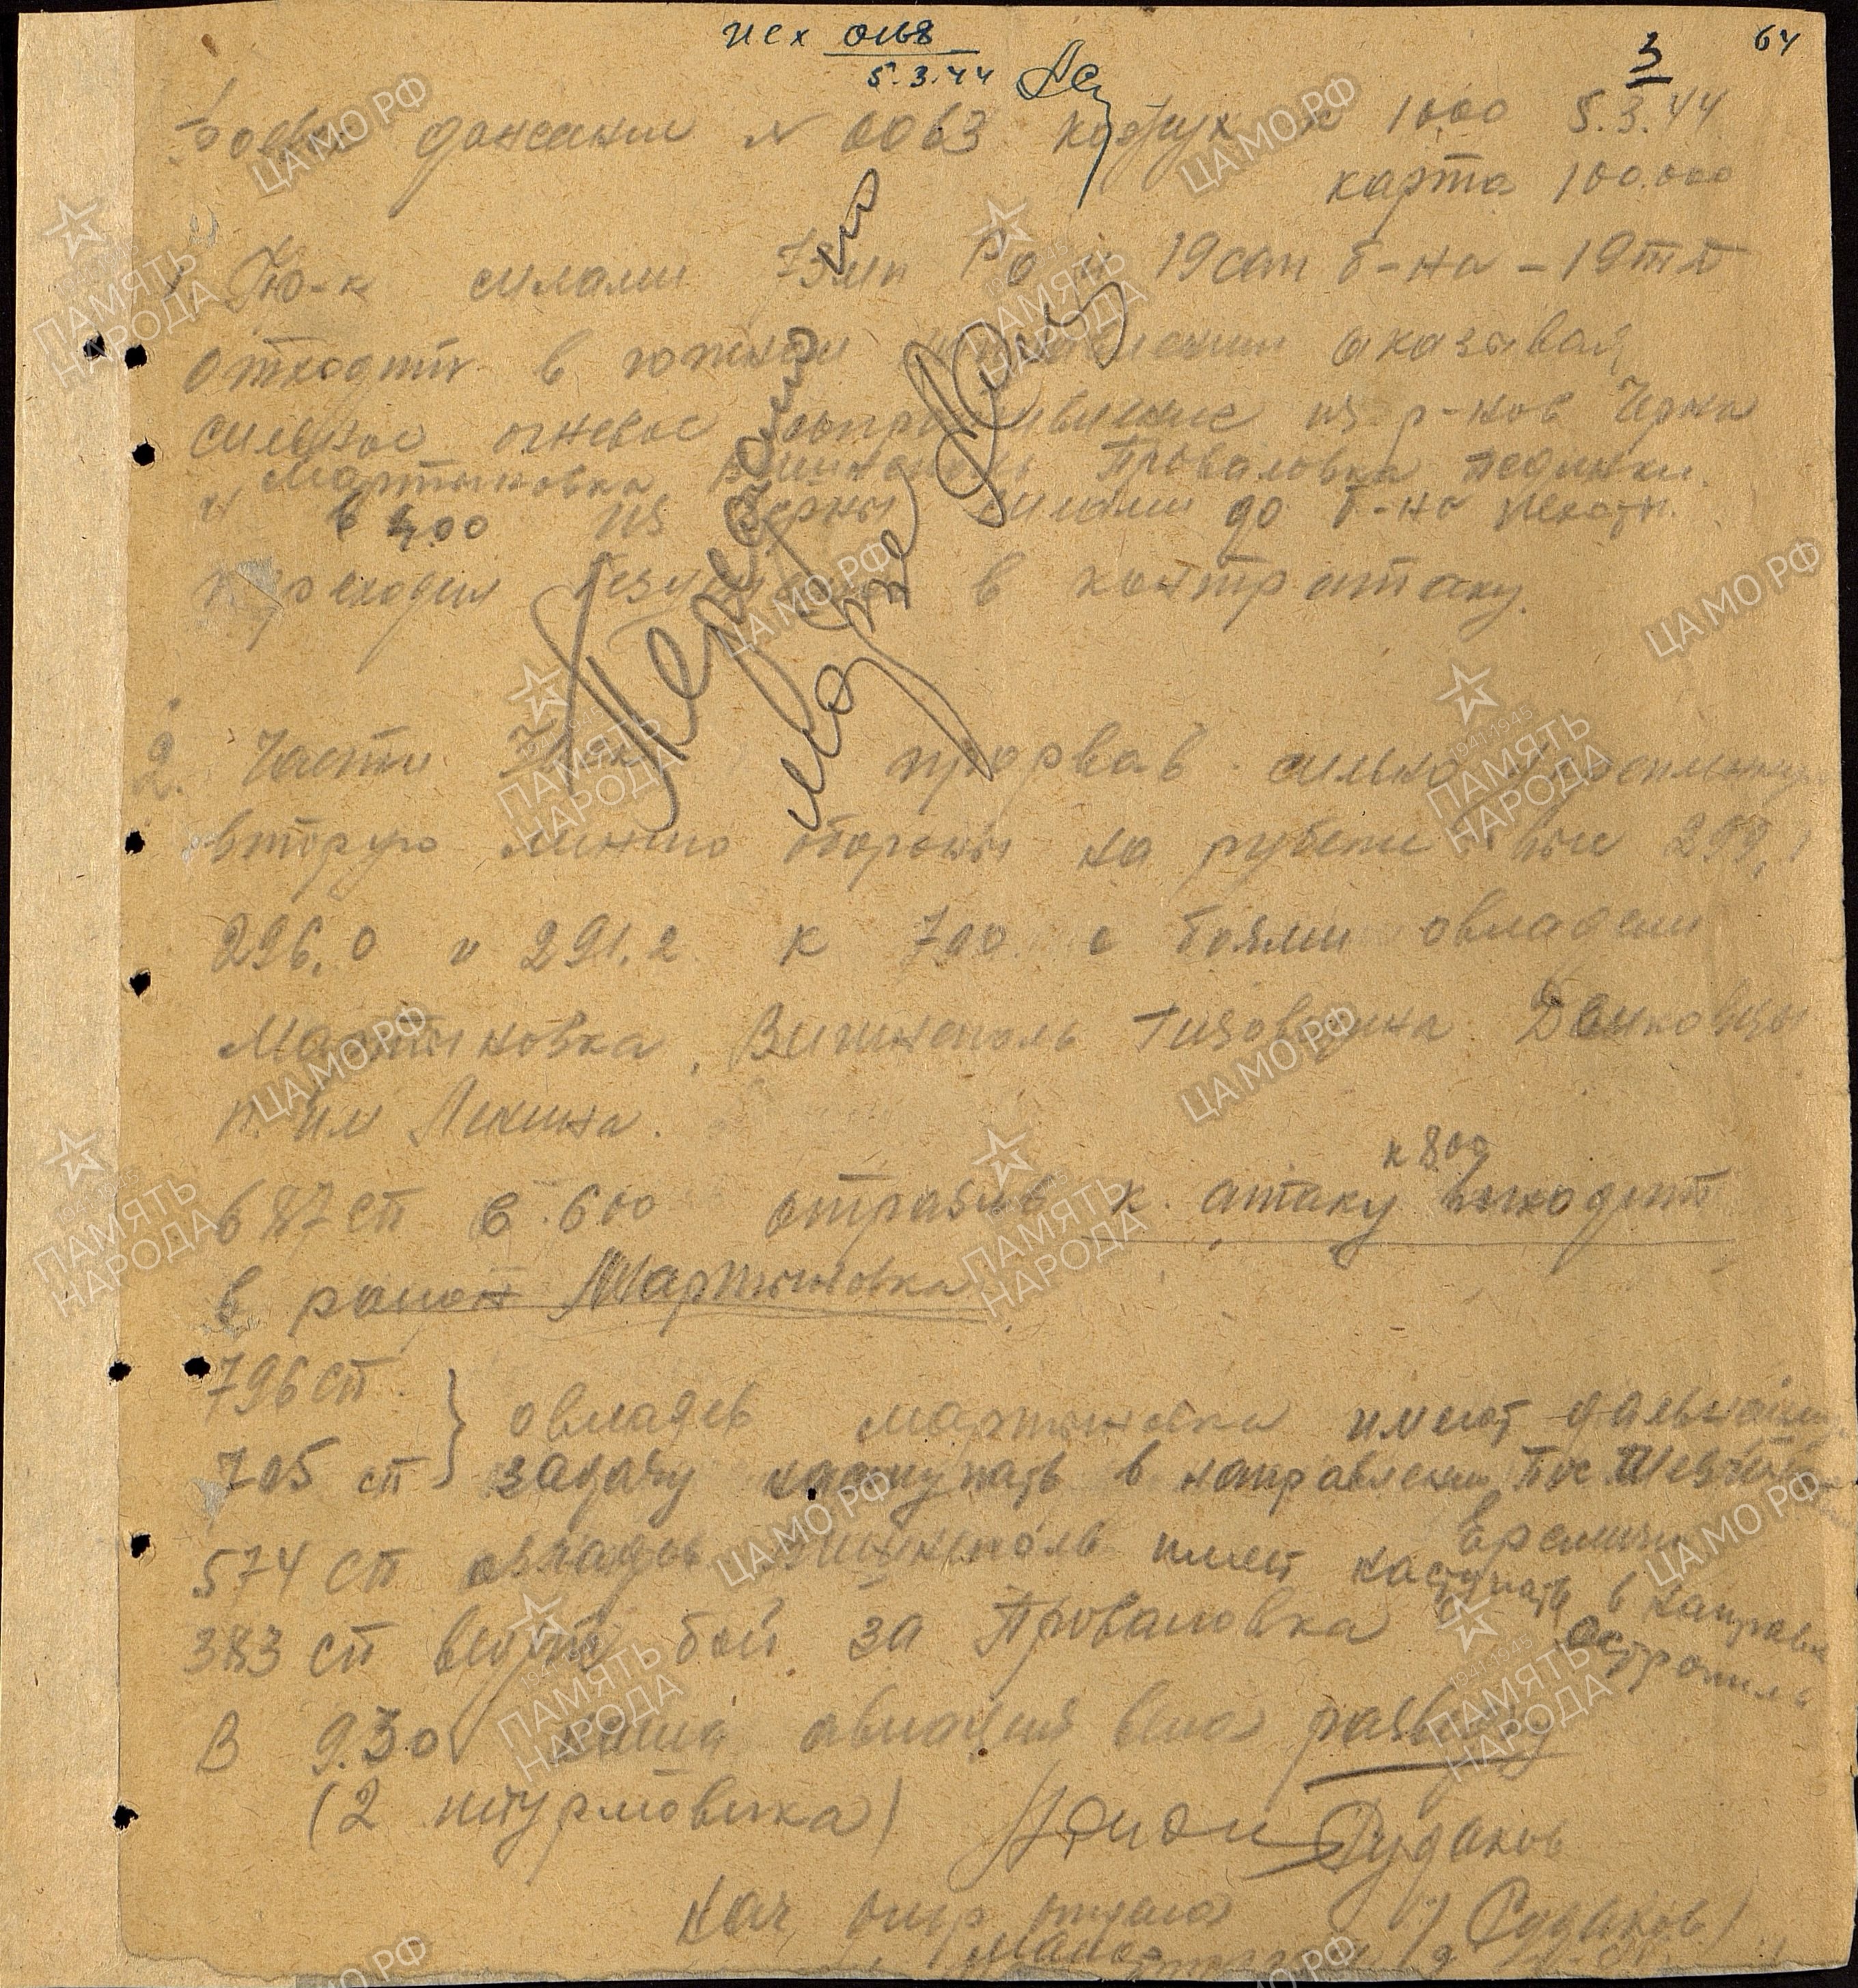 исх 0168
5.3.44
3
64
донесение № 0063 к 1000 5.3.44
карта 100.000
1 Пр-к силами 19 сап б-на - 19тд
отходит в южном направлении оказывая
сильное огневое сопротивление из р-нов Черна
Мартыновка, Вишнополь Проваловка Пединки
и в 4.00 из Черны силами до б-на пехоты
переходил безуспешно в контратаку.
Передано
Морзе
2. Части прорвав сильно укрепленную
вторую линию обороны на рубеже выс 299,1
296.0 и 291.2 к 700 с боями овладели
Мартыновка, Вишнополь Демковцы
п. им Ленина.
687 сп в 600 отразив к. атаку к 800 выходит
в район Мартыновка
796 сп
705 сп } овладев Мартыновка имеют дальнейшую
задачу наступать в направлении Пос
574 сп овладев Вишнополь имеет наступать в направл
383 сп ведет бой за Проваловка
В 9.30 наша авиация вела разведку
(2 штурмовика)
Нач опер отдела